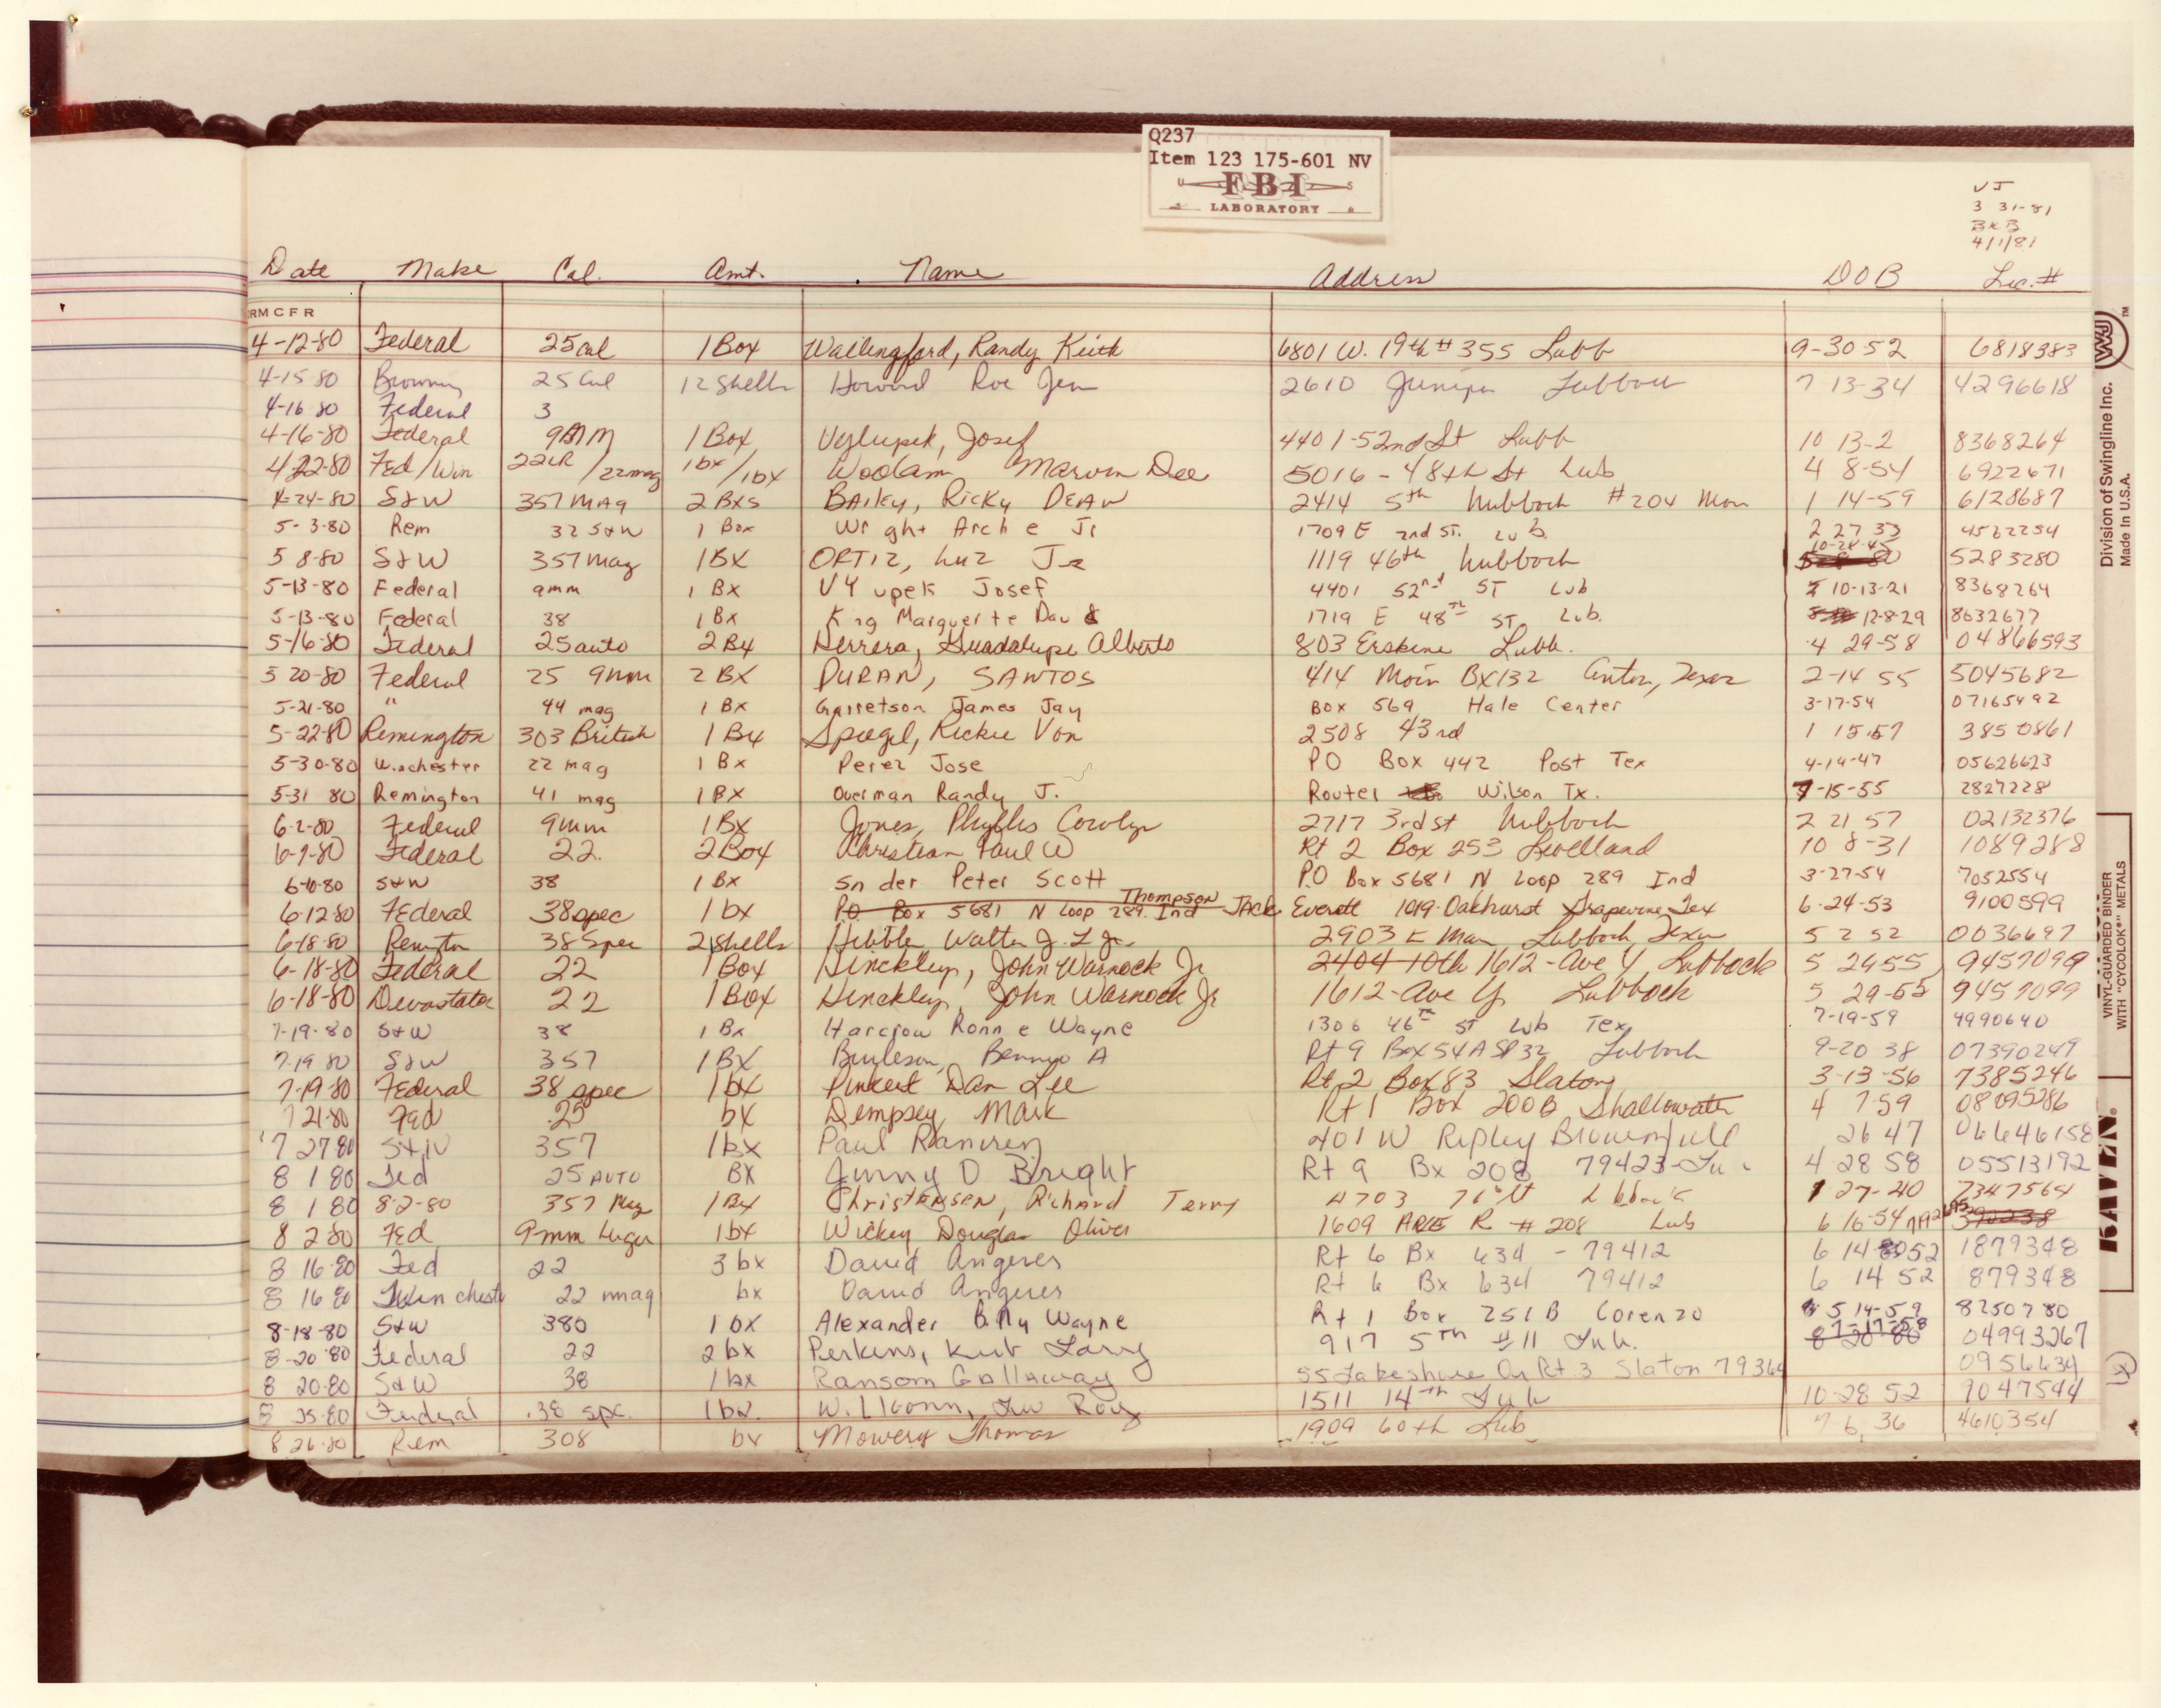 Q237
Item 123 175-601 NV
FBI
LABORATORY
VJ
3 31-81
BKB
4/1/81
Date Make Cal. Amt. Name Address DOB Lic. #
RMCFR
4-12-80 Federal 25cal 1 Box Wallingford, Randy Keith 6801 W. 19th #355 Lubb 9-30 52 6818383
4-15 80 25 Cal 12 Shells Howard Roe 2610 Juniper Lubbock 7 13-34 4296618
4-16 80 Federal 3
4-16-80 Federal 9MM 1 Box Vylupek, Josef 4401-52nd St Lubb 10 13-2 8368264
4/22-80 Fed/Win 22LR/22mag 1bx/1bx Woolam Marvin Dee 5016-48th St Lub 4 8-54 6922671
4-24-80 S&W 357 MAG 2 BXS BAILEY, RICKY DEAN 2414 5th Lubbock #204 1 14-59 6128687
5-3-80 Rem 32 S&W 1 Box Wr ght Arch e Jr 1709 E 2nd ST. Lub. 2 27 33 4522254
5 8-80 S&W 357 Mag 1 BX ORTIZ, Luz 1119 46th Lubbock 10-24-45 5283280
5-13-80 Federal 9mm 1 Bx VY upek Josef 4401 52nd ST Lub 10-13-21 8368264
5-13-80 Federal 38 1 Bx K ng Marguer te 1719 E 48TH ST. Lub. 12-8-29 8632677
5-16-80 Federal 25 auto 2 Bx Herrera, Guadalupe Alberto 803 Erskine Lubb. 4 29-58 04866593
5 20-80 Federal 25 9mm 2 BX DURAN, SANTOS 414 Main BX132 Anton, Texas 2-14 55 5045682
5-21-80 " 44 mag 1 Bx Garretson James Jay Box 569 Hale Center 3-17-54 07165492
5-22-80 Remington 303 British 1 Bx Spiegel, Rickie Von 2508 43rd 1 15-57 3850861
5-30-80 W.nchester 22 mag 1 Bx Perez Jose PO Box 442 Post Tex 4-14-47 05626623
5-31 80 Remington 41 mag 1 BX Overman Randy J. Router Wilson Tx. 7-15-55 2827228
6-2-80 Federal 9mm 1 BX Jones, Phyllis Carolyn 2717 3rd st Lubbock 2 21 57 02132376
6-7-80 Federal 22. 2 Box Christian Paul W Rt 2 Box 253 Levelland 10 8-31 1089288
6-10-80 S&W 38 1 Bx Sn der Peter Scott P.O Box 5681 N Loop 289 Ind 3-27-54 7052554
6-12-80 FEderal 38spec 1 bx PO Box 5681 N Loop 289 Ind Thompson JACK Everett 1019 Oakhurst Grapevine, Tex 6-24-53 9100599
6-18-80 Remington 38 Spec 2 shells Hibbler Walter J. 2903 E Main Lubbock Texas 5 2 52 0036697
6-18-80 Federal 22 1 Box Hinckley, John Warnock Jr 2404 10th 1612-Ave Y, Lubbock 5 29-55 9457099
6-18-80 Devastator 22 1 Box Hinckley, John Warnock Jr 1612-Ave Y, Lubbock 5 29-55 9457099
7-19-80 S&W 38 1 Bx Hargrow Ronn e Wayne 1306 46TH ST Lub Tex 7-19-59 4990640
7-19 80 S&W 357 1 BX Burleson, Bennye A Rt 9 Box 54A SP32 Lubbock 9-20 38 07390249
7-19-80 FEderal 38 spec 1 bx Pinkert Dan Lee Rt. 2 Box 83 Slaton 3-13-56 7385246
7 21-80 Fed .25 bx Dempsey Mark Rt 1 Box 200B Shallowater 4 7 59 08095286
7 27 80 S&W 357 1 bx Paul Ramirez 401 W Ripley Brownfield 26 47 06646158
8 1 80 Fed 25 AUTO BX Jimmy D Bright Rt 9 Bx 208 79423 4 28 58 05513192
8 1 80 8-2-80 357 Mag 1 Bx ChristENSEN, Richard Terry 4703 71st 1 27-40 7347564
8 2 80 Fed 9mm Luger 1 bx Wickey Douglas Oliver 1609 AVE R #208 Lub 6 16-54
8 16-80 Fed 22 3 bx David Angeres Rt 6 Bx 634 - 79412 6 14 52 1879348
8 16 80 Winchester 22 mag bx David Angeres Rt 6 Bx 634 79412 6 14 52 879348
8-18-80 S&W 380 1 bx Alexander Billy Wayne Rt 1 Box 251B Lorenzo 5 14-59 8250780
8-20-80 Federal 22 2 bx Perkins, Kurt Larry 917 5TH #11 Lub. 7-17-58 04993267
8 20-80 S&W 38 1 bx Ransom Gallaway 55 Lakeshore Dr Rt. 3 Slaton 79364 0956634
8 25-80 Federal .38 spc. 1 bx. Roy 1511 14th Lub 10-28 52 9047544
8 26-80 Rem 308 bx Mowery Thomas 1909 60th Lub 7 6 36 4610354
WJ TM
Division of Swingline Inc.
Made in U.S.A.
VINYL-GUARDED BINDER
WITH "CYCOLOK®" METALS
RAVEN®